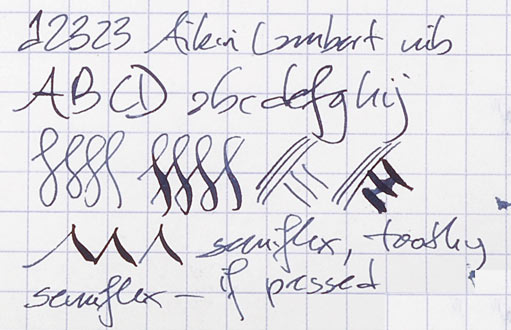 12323 Aikin Lambert nib
ABCD abcdefghij
semiflex, toothy
semiflex – if pressed